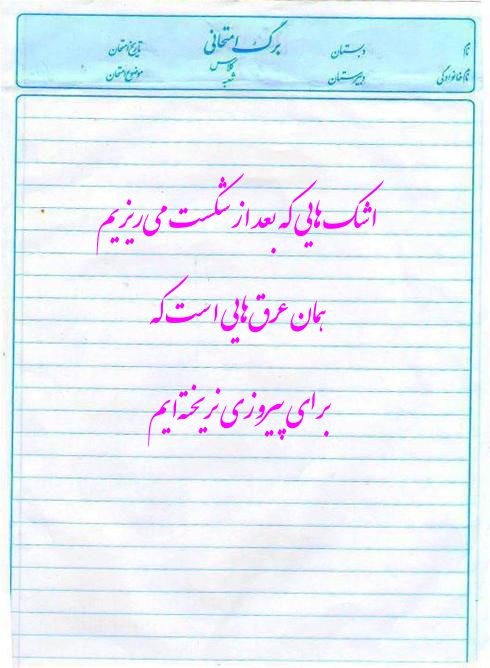 نام دبستان برگ امتحانی تاریخ امتحان
نام خانوادگی دبیرستان کلاس موضوع امتحان
شعبه
اشک هایی که بعد از شکست می ریزیم
همان عرق هایی است که
برای پیروزی نریخته ایم